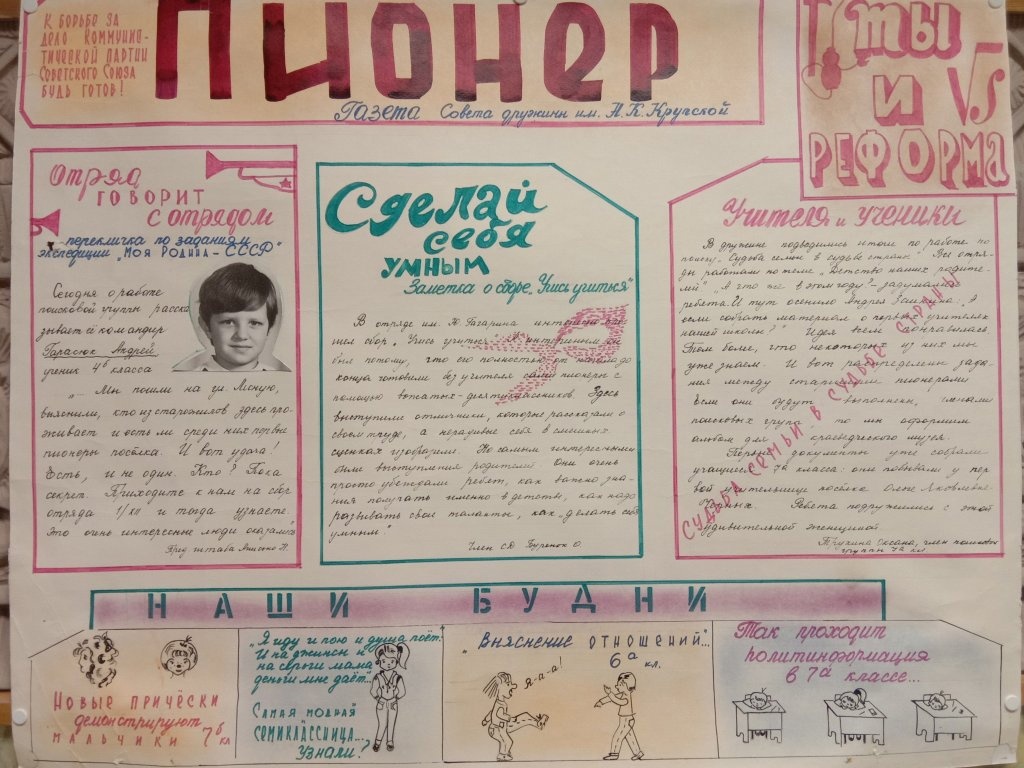 К борьбе за
дело Коммунис-
тической партии
Советского Союза
будь готов!
Пионер
Газета Совета дружины им. Н.К.Крупской
ты
и √5
РЕФОРМА
Отряд
говорит
с отрядом
перекличка по заданиям
экспедиции „Моя Родина - СССР"
Сегодня о работе
поисковой группы расска
зывает её командир
Тарасюк Андрей
ученик 4б класса
„- Мы пошли на ул. Лесную,
выяснили, кто из старожилов здесь про-
живает и есть ли среди них первые
пионеры посёлка. И вот удача!
Есть, и не один. Кто? Пока
секрет. Приходите к нам на сбор
отряда и тогда узнаете.
Это очень интересные люди оказались"
Пред штаба
Сделай
себя
умным
Заметка о сборе „Учись учиться"
В отряде им. Ю. Гагарина интересно про-
шел сбор „Учись учиться". интересным он
был потому, что его полностью от начала до
конца готовили без учителя сами пионеры с
помощью вожатых-десятиклассников. Здесь
выступили отличники, которые рассказали о
своем труде, а нерадивые себя в смешных
сценках изобразили. Но самым интересными
были выступления родителей они очень
просто убеждали ребят, как важно зна-
ния получать именно в детстве, как надо
развивать свои таланты, как „делать себя
умным".
Член СД Буренок О.
Учителя и ученики
В дружине подводились итоги по работе по
поиску „Судьба семьи в судьбе страны" Все отря-
ды работали по теме „Детство наших родите-
лей" „А что же в этом году?- задумались
ребята. И тут осенило Андрея „А
если собрать материал о первых учителях
нашей школы?" Идея всем понравилась.
Тем более, что некоторых из них мы
уже знаем. И вот распределены зада-
ния между старшими пионерами
Если они будут выполнены, членами
поисковых групп то мы оформим
альбом для краеведческого музея.
Первые документы уже собрали
учащиеся 7а класса: они побывали у пер
вой учительницы посёлка Ольги Яковлевны
Ребята подружились с этой
удивительной женщиной.
Трухина Оксана, член поисковой
группы 7а кл
СУДЬБА СЕМЬИ В СУДЬБЕ СТРАНЫ
НАШИ БУДНИ
Новые причёски
демонстрируют
мальчики 7б кл
„Я иду и пою и душа поёт.
И на джинсы и
на серьги мама
деньги мне даёт..."
Самая модная
семиклассница...
Узнали?
„Выяснение отношений"...
6а кл.
Я-а-а!
Так проходит
политинформация
в 7а классе...